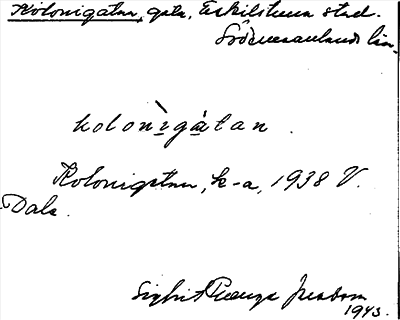 Kolonigatan, gata, Eskilstuna stad.
Södermanlands län.
kolonìgàtan.
Kolonigatan, k-a, 1938 V.
Dala.
Sigbrit
1943.